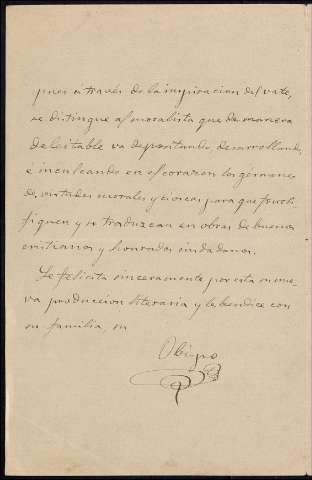 pues á través de la inspiracion del vate,
se distingue al moralista que de manera
deleitable va despertando, desarrollando
é inculcando en el corazon los gérmenes
de virtudes morales y cívicas para que fructi-
fiquen y se traduzcan en obras de buenos
cristianos y honrados ciudadanos.
Le felicita sinceramente por esta su nue-
va produccion literaria y le bendice con
su familia, su
Obispo